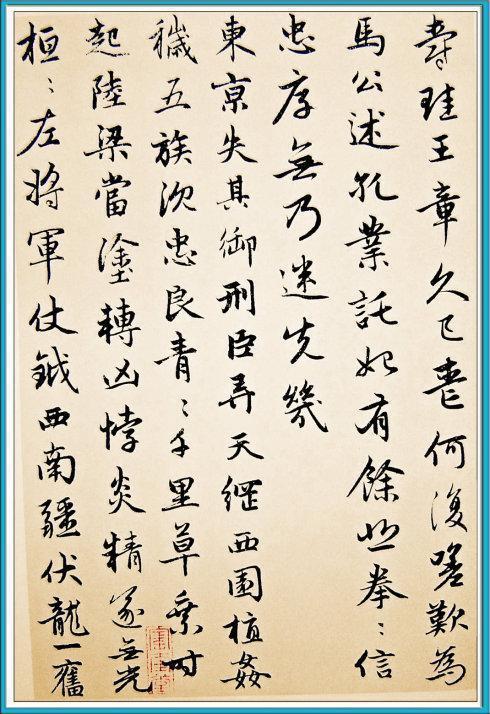 爵珪王章久已喪何復嗟歎為
馬公述孔業託始有餘悲拳〻信
忠厚無乃迷先幾
東亰失其御刑臣弄天綱西園植姦
穢五族沉忠良青〻千里草乘時
起陸梁當塗轉凶悖炎精遂無光
桓〻左將軍仗鉞西南疆伏龍一奮